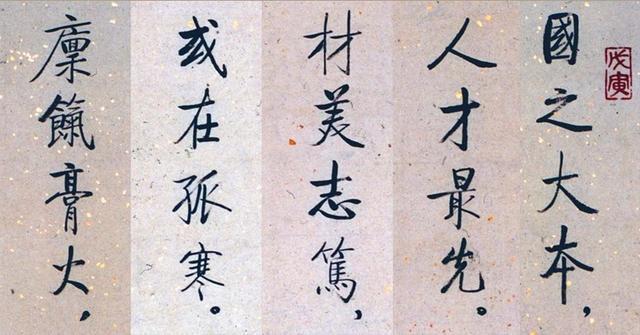 戊寅
國之大本，
人才最先。
材美志篤，
或在孤寒。
廩餼膏火，